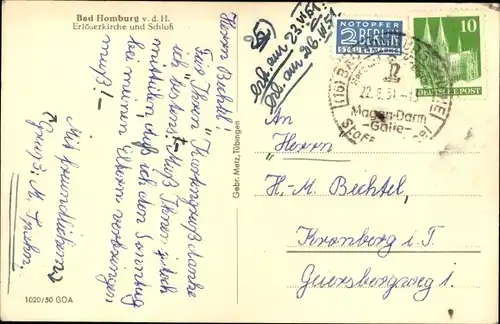 Bad Homburg v. d. H.
Erlöserkirche und Schloß
Herrn Bechtel!
Für Ihren Kartengruß danke
ich bestens. - Muß Ihnen jedoch
mitteilen, daß ich den Sonntag
bei meinen Eltern verbringen
muß! -
Mit freundlichem
Gruß: M.
1020/50 GÖA
Gebr. Metz, Tübingen
25)
erh. am 23.VI.51.
erl. am 26.VI.51
NOTOPFER
2 BERLIN
STEUERMARKE
10
DEUTSCHE POST
(16) BAD HOMBURG
22.6.51.
Magen-Darm
-Galle-
Stoff
An
"Herrn"
H.-M. Bechtel,
Kronberg i. T.
Geiersbergweg 1.